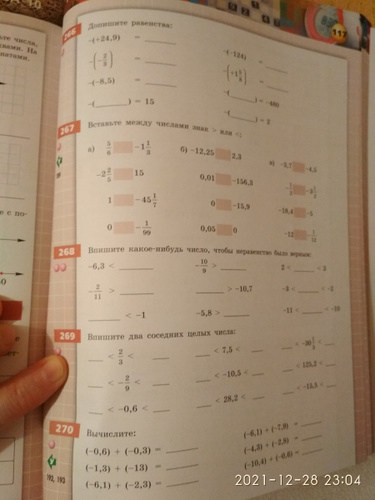 117
266 Допишите равенства:
−(−24,9) = ____ −(−124) = ____
−(−2/3) = ____ −(−1 5/8) = ____
−(−8,5) = ____ −(____) = −400
−(____) = 15 −(____) = 2
267 Вставьте между числами знак > или <:
а) 5/6 −1 1/3 б) −12,25 2,3 в) −3,7 −4,5
−2 2/5 15 0,01 −156,3
1 −45 1/7 0 −15,9 −18,4 −5
0 −1/99 0,05 0 −12
268 Впишите какое-нибудь число, чтобы неравенство было верным:
−6,3 < ____ −10/9 > ____ 2 < ____ < 3
−2/11 > ____ ____ > −10,7 −3 < ____ < −2
____ < −1 −5,8 > ____ −11 < ____ < −10
269 Впишите два соседних целых числа:
____ < 2/3 < ____ ____ < 7,5 < ____
____ < −2/9 < ____ ____ < −10,5 < ____ ____ < 125,2 < ____
____ < −0,6 < ____ ____ < 28,2 < ____ ____ < −15,5 < ____
270 Вычислите:
(−0,6) + (−0,3) = ____ (−6,1) + (−7,9) = ____
(−1,3) + (−13) = ____ (−4,3) + (−2,8) = ____
(−6,1) + (−2,3) = ____ (−10,4) + (−0,6) = ____
192, 193
2021-12-28 23:04